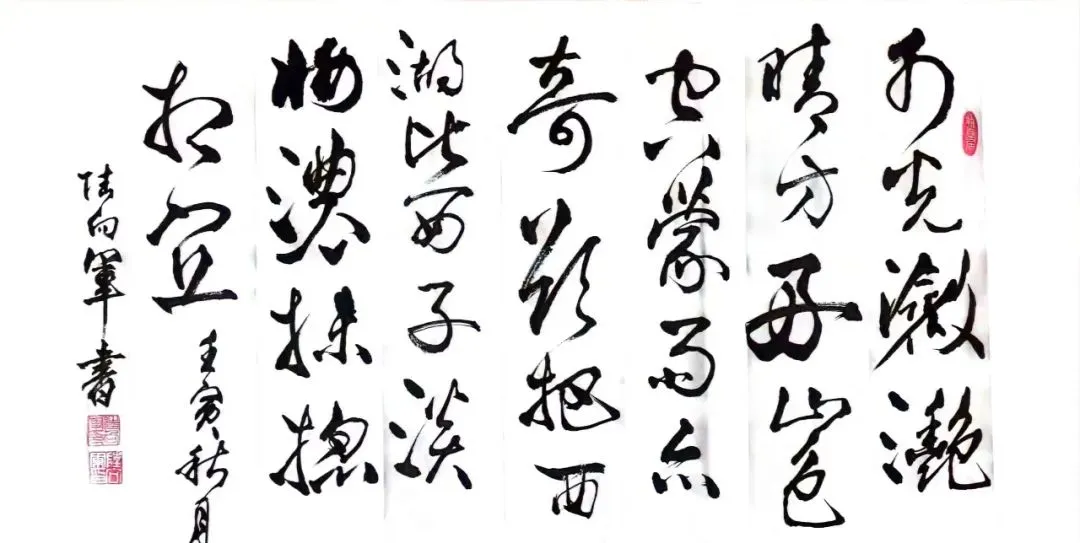 水光瀲灧
晴方好山色
空蒙雨亦
奇欲把西
湖比西子淡
妝濃抹摠
相宜
壬寅秋月
陆向軍書